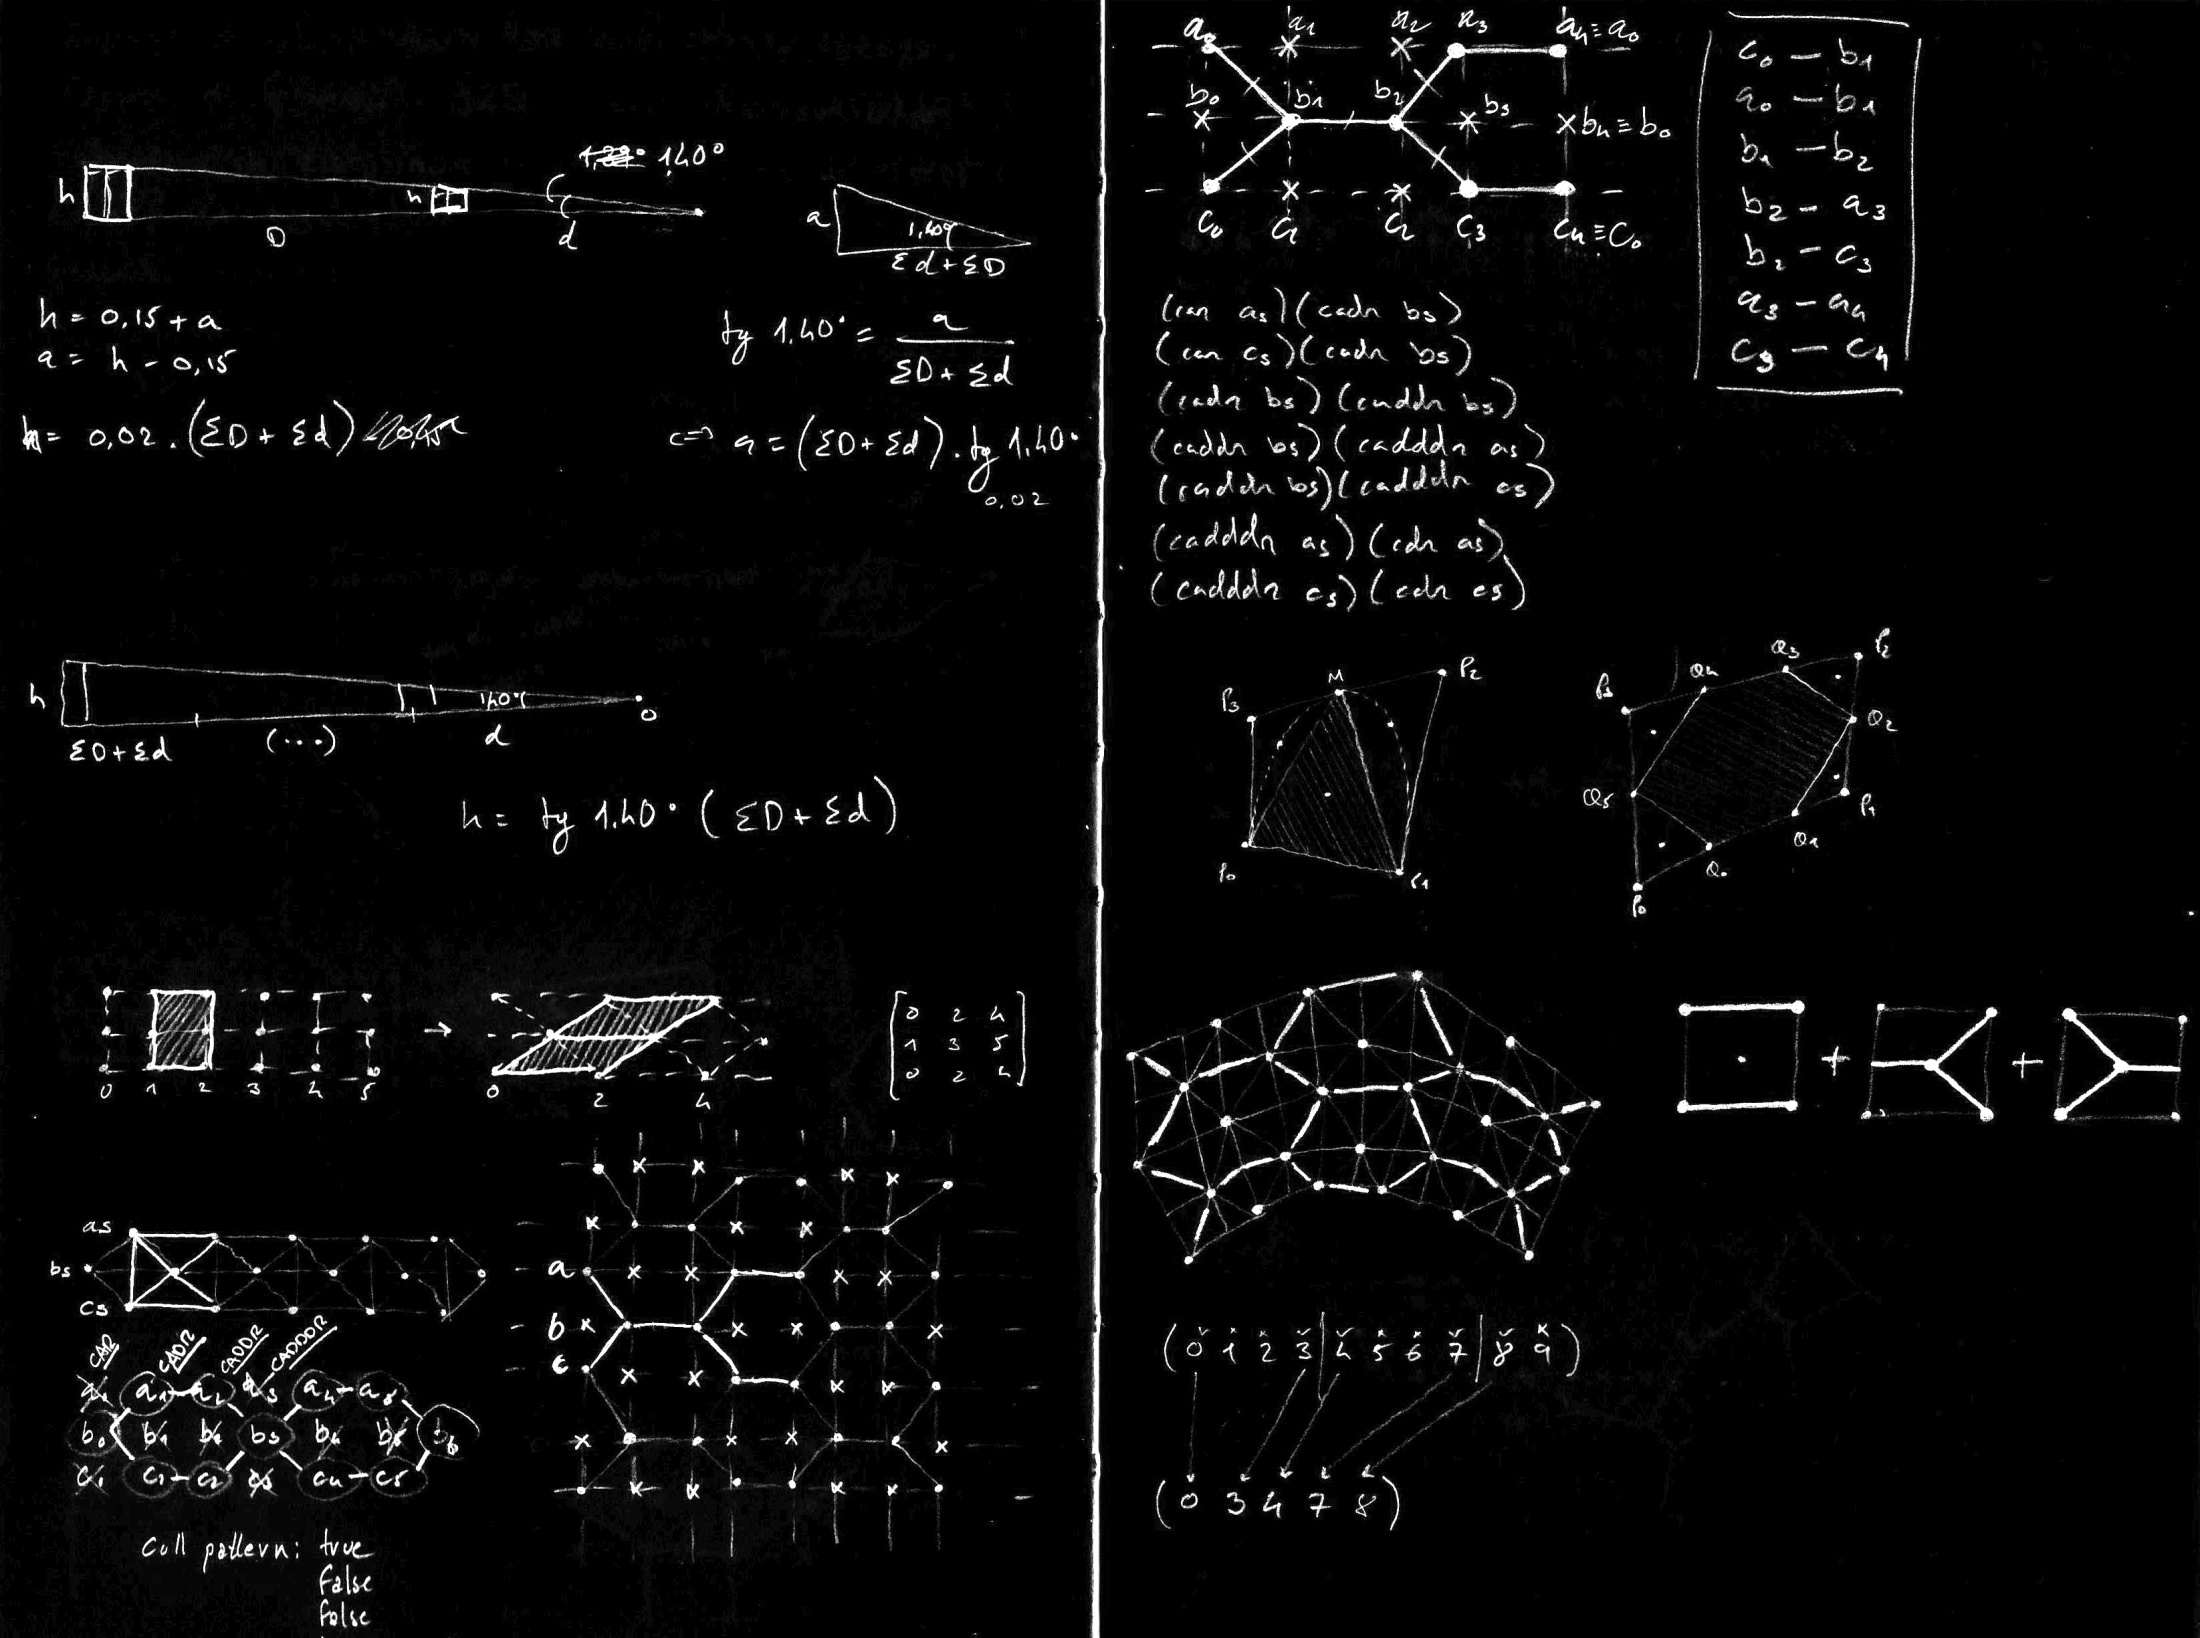 1,40°
h
h
D
d
a
1,40°
Σd+ΣD
h = 0,15 + a
a = h - 0,15
tg 1,40° = a
ΣD + Σd
h = 0,02 . (ΣD + Σd)
<=> a = (ΣD + Σd) . tg 1,40°
0,02
h
1,40°
0
ΣD+Σd
(...)
d
h = tg 1,40° (ΣD + Σd)
0 1 2 3 4 5
→
0 2 4
0 2 4
1 3 5
0 2 4
as
bs
cs
CAR CADR CADDR CADDDR
a1 a2 a3 a4 a5
b0 b1 b3 b4 b5 b6
c1 c2 c3 c4 c5
a
b
c
Cull pattern: true
False
False
a0 a1 a2 a3 a4 ≡ a0
b0 b1 b2 b3 b4 ≡ b0
c0 c1 c2 c3 c4 ≡ c0
c0 — b1
a0 — b1
b1 — b2
b2 — a3
b2 — c3
a3 — a4
c3 — c4
(car as) (cadr bs)
(car cs) (cadr bs)
(cadr bs) (caddr bs)
(caddr bs) (cadddr as)
(caddr bs) (cadddr cs)
(cadddr as) (cdr as)
(cadddr cs) (cdr cs)
P3 M P2
P0 P1
P3 Q4 Q3 P2
Q2
Q5 P1
Q1
Q0
P0
+ +
(0 1 2 3 | 4 5 6 7 | 8 9)
(0 3 4 7 8)